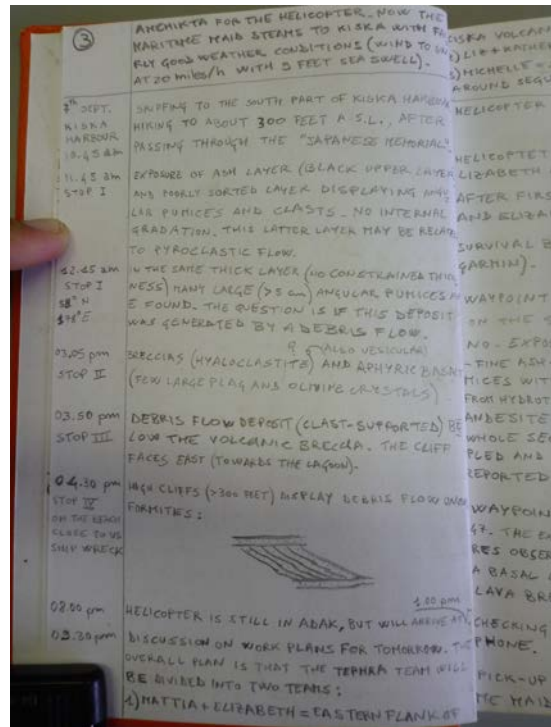 3
AMCHIKTA FOR THE HELICOPTER. NOW THE
MARITIME MAID STEAMS TO KISKA WITH FA
RLY GOOD WEATHER CONDITIONS (WIND TO
AT 20 miles/h WITH 5 FEET SEA SWELL).
7th SEPT.
KISKA
HARBOUR
10.45 am
SHIPPING TO THE SOUTH PART OF KISKA HARBOUR
HIKING TO ABOUT 300 FEET A.S.L., AFTER
PASSING THROUGH THE "JAPANESE MEMORIAL".
11.45 am
STOP I
EXPOSURE OF ASH LAYER (BLACK UPPER LAYER
AND POORLY SORTED LAYER DISPLAYING ANGU
LAR PUMICES AND CLASTS. NO INTERNAL
GRADATION. THIS LATTER LAYER MAY BE RELATE
TO PYROCLASTIC FLOW.
12.15 am
STOP I
58° N
178° E
IN THE SAME THICK LAYER (NO CONSTRAINED THICK
NESS) MANY LARGE (>5 cm) ANGULAR PUMICES A
E FOUND. THE QUESTION IS IF THIS DEPOSIT
WAS GENERATED BY A DEBRIS FLOW.
03.05 pm
STOP II
(ALSO VESICULAR)
BRECCIAS (HYALOCLASTITE) AND APHYRIC BASALT
(FEW LARGE PLAG AND OLIVINE CRYSTALS)
03.50 pm
STOP III
DEBRIS FLOW DEPOSIT (CLAST-SUPPORTED) BE
LOW THE VOLCANIC BRECCIA. THE CLIFF
FACES EAST (TOWARDS THE LAGOON).
04.30 pm
STOP IV
ON THE BEACH
CLOSE TO US
SHIP WRECK
HIGH CLIFFS (>300 FEET) DISPLAY DEBRIS FLOW
FORMITES:
1.00 pm
08.00 pm
HELICOPTER IS STILL IN ADAK, BUT WILL ARRIVE AT
08.30 pm
DISCUSSION ON WORK PLANS FOR TOMORROW. THE
OVERALL PLAN IS THAT THE TEPHRA TEAM WILL
BE DIVIDED INTO TWO TEAMS:
1) MATTIA + ELIZABETH = EASTERN FLANK OF
KISKA VOLCAN
2) LIZ + KATHER
3) MICHELLE =
AROUND SEGU
HELICOPTER
HELICOPTET
ELIZABETH
AFTER FIRS
AND ELIZA
SURVIVAL B
GARMIN).
WAYPOINT
ON THE
NO. EXPO
- FINE ASH
MICES WIT
FROM HYDROT
ANDESITE
WHOLE SE
PLED AND
REPORTED
WAYPOIN
47. THE EX
RES OBSER
A BASAL
LAVA BRE
CHECKING
PHONE.
PICK-UP
ME MAID